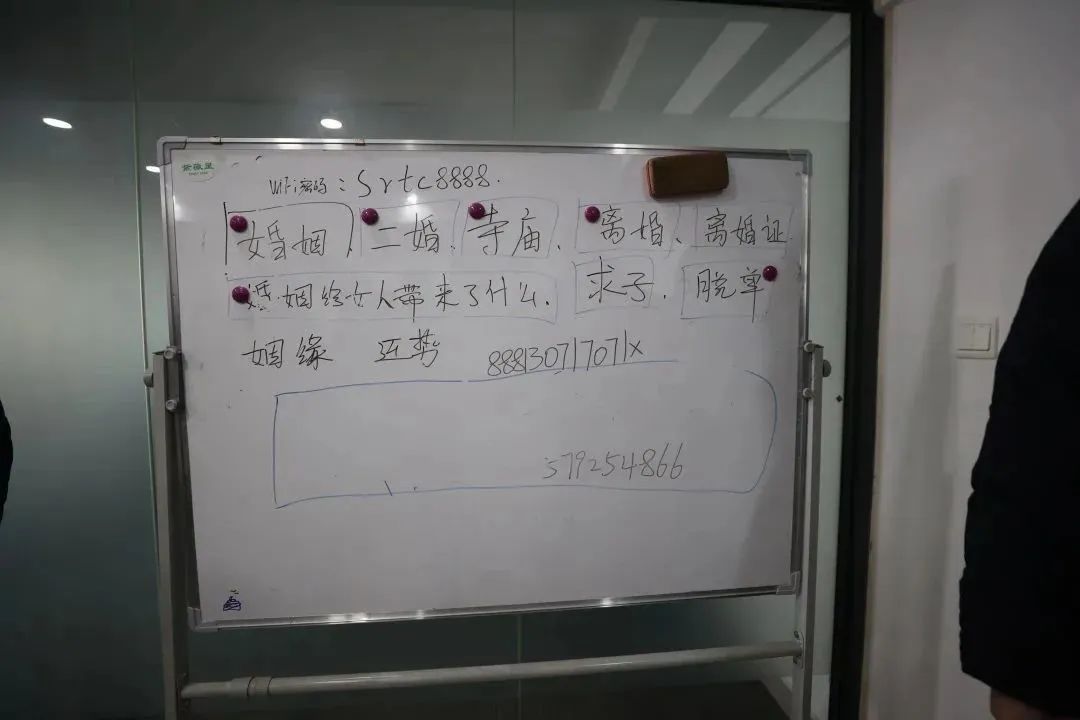 紫微星
WiFi密码：Srtc8888.
女昏姻、二婚、寺庙、离婚、离婚证
婚姻给女人带来了什么、求子、脱单
姻缘 运势
579254866